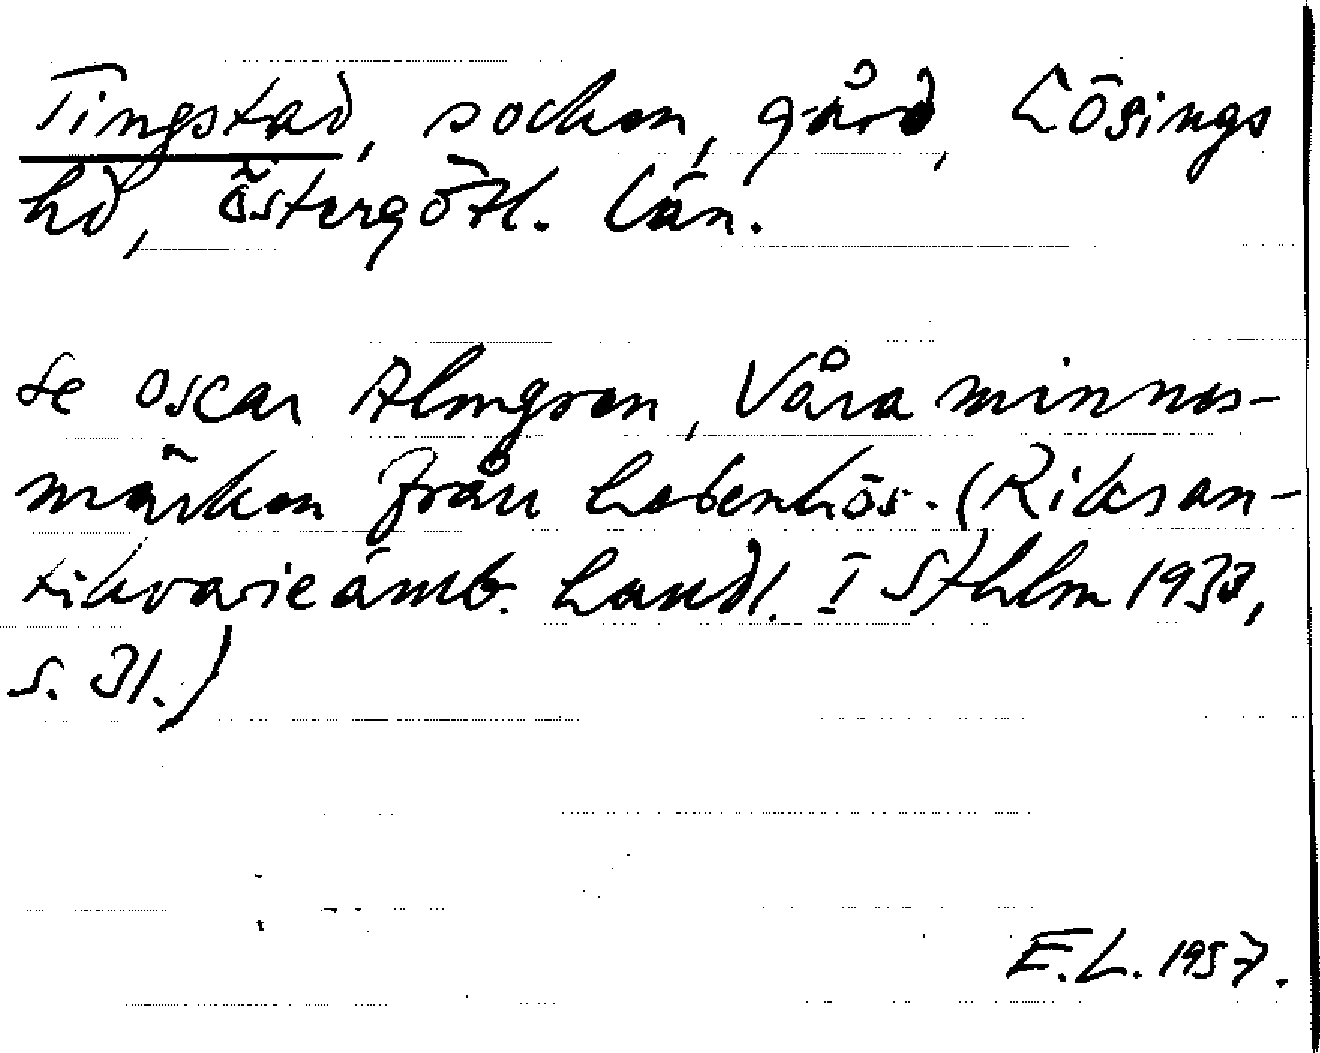 Tingstad, socken, gård, Lösings
hd, Östergötl. län.
Se Oscar Almgren, Våra minnes-
märken från hedenhös. (Riksan-
tikvarieämb. handl. I Sthlm 1933,
s. 31.)
E.L. 1957.